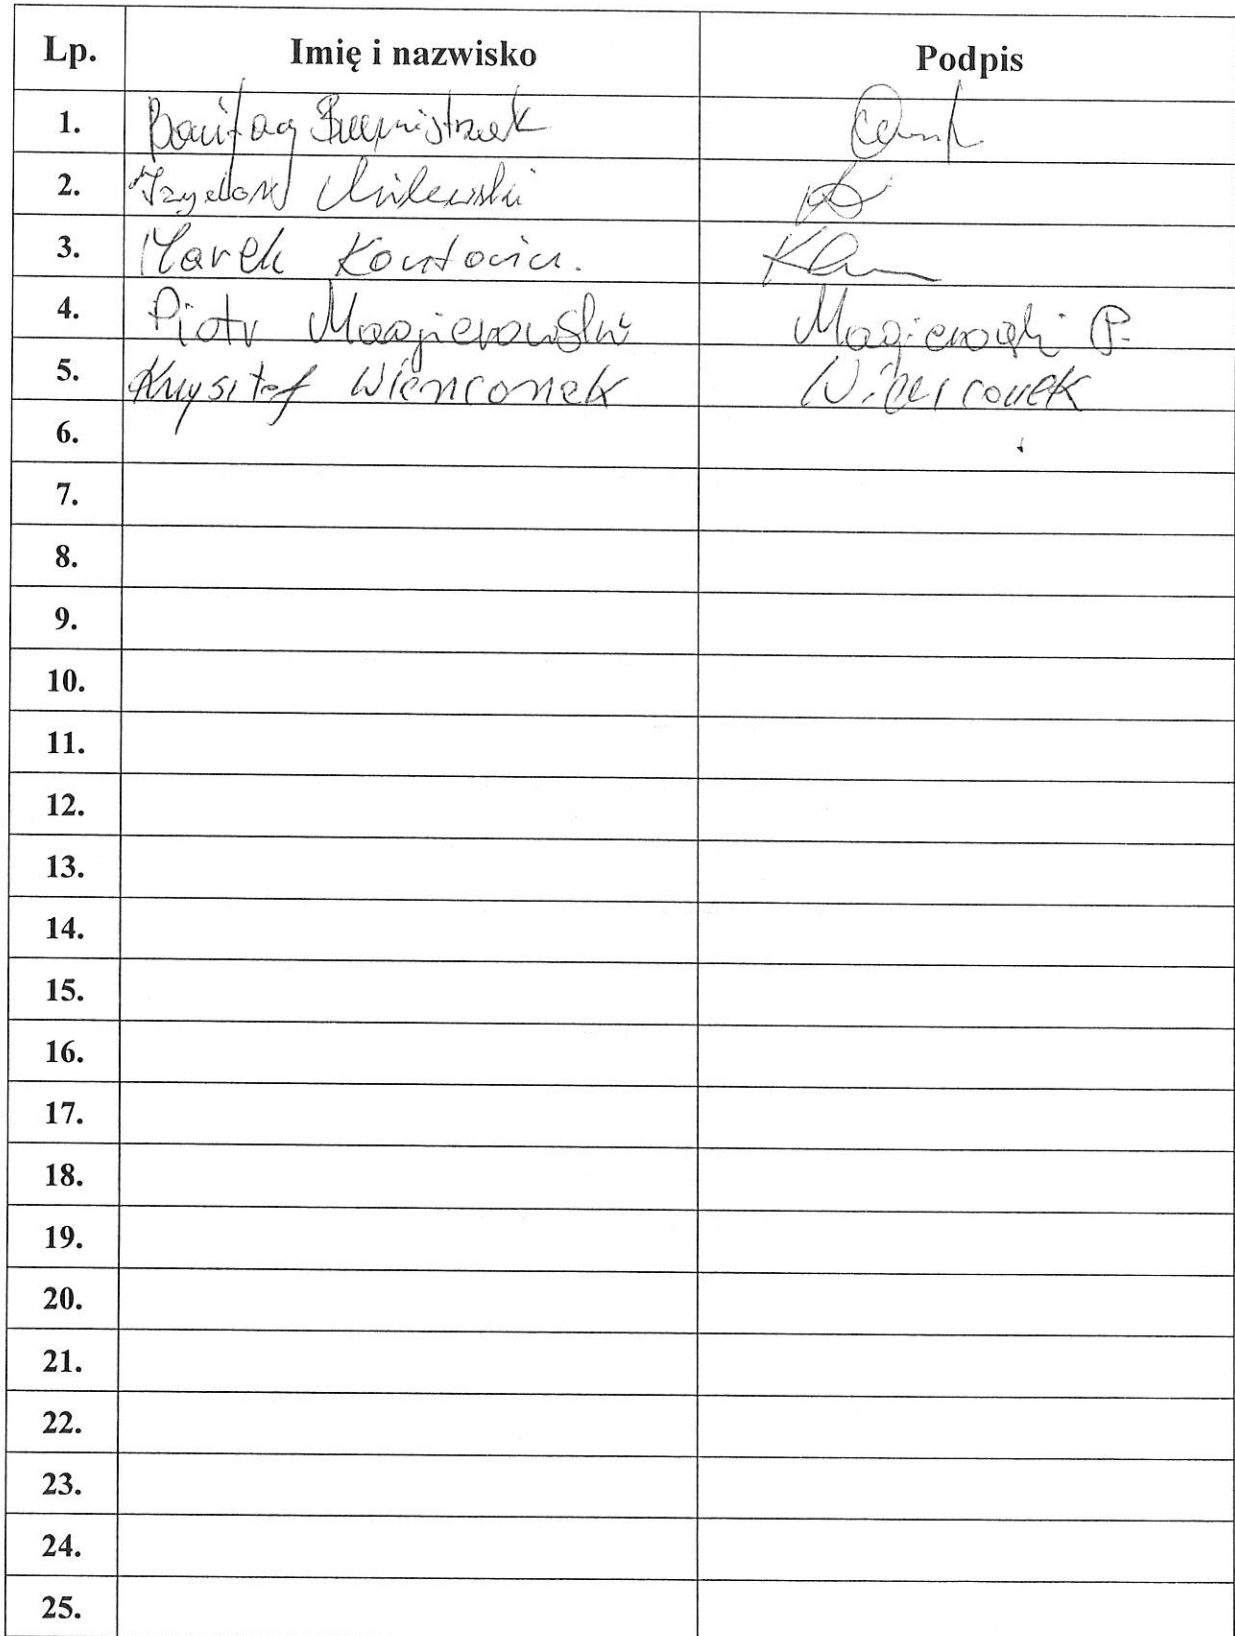 Lp. Imię i nazwisko Podpis
1. Bonifacy
2. Izydor Milewski
3. Marek
4. Piotr Magierowski Magierowski P.
5. Krzysztof Wienconek Wienconek
6.
7.
8.
9.
10.
11.
12.
13.
14.
15.
16.
17.
18.
19.
20.
21.
22.
23.
24.
25.